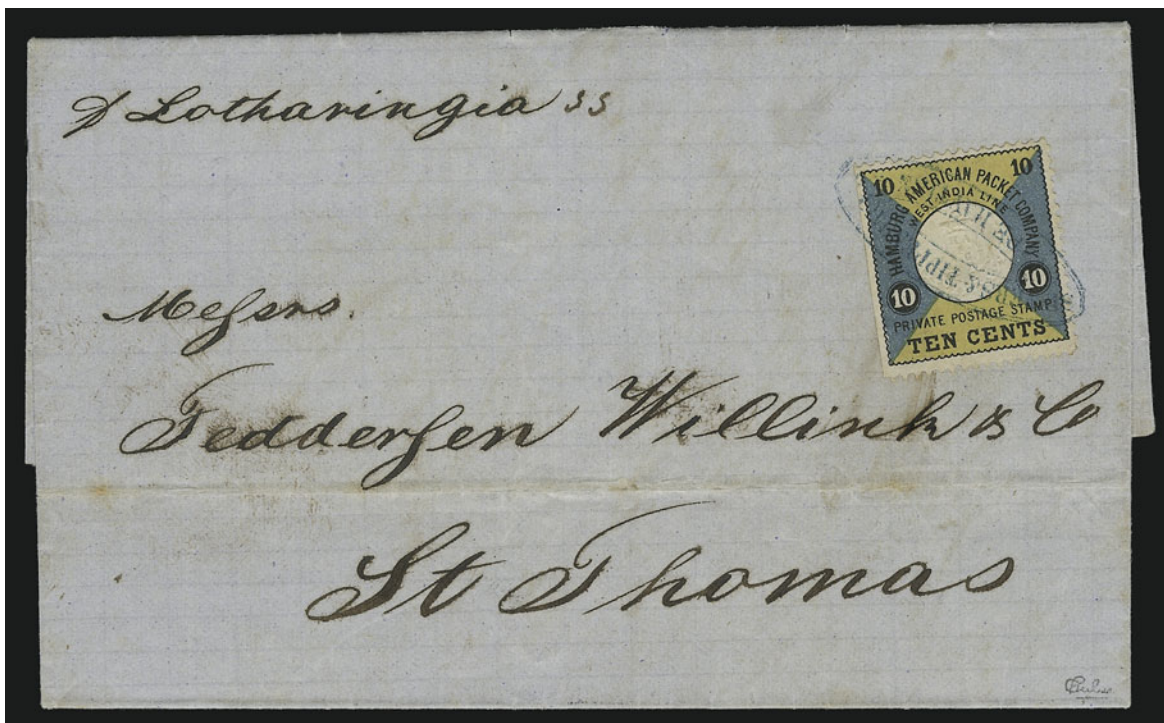 p Lotharingia ss
10 10
HAMBURG AMERICAN PACKET COMPANY
WEST INDIA LINE
10 10
PRIVATE POSTAGE STAMP
TEN CENTS
Messrs.
Feddersen Willink & Co
St Thomas